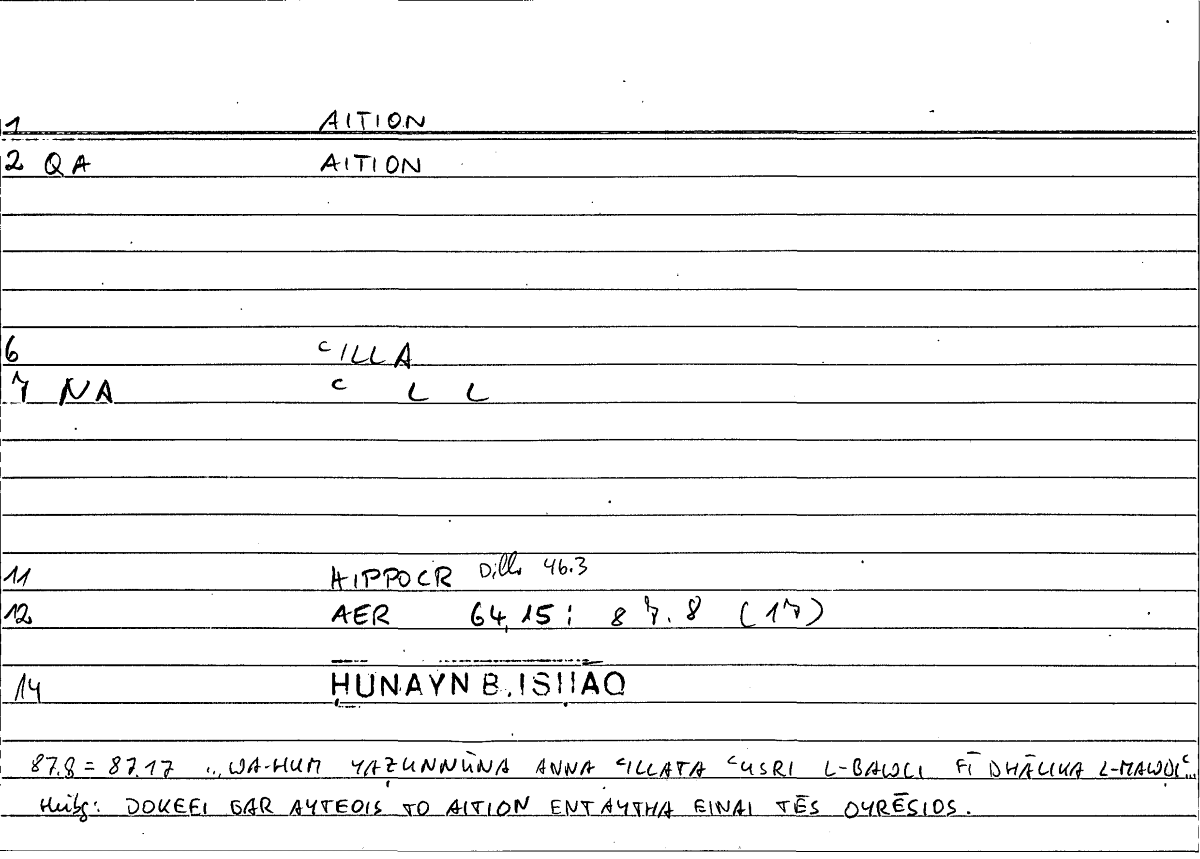 1 AITION
2 QA AITION
6 ᶜILLA
7 NA ᶜ L L
11 HIPPOCR Diller 46.3
12 AER 64,15; 87.8 (17)
14 ḤUNAYN B. ISḤĀQ
87.8 = 87.17 „WA-HUM YAẒUNNŪNA ANNA ᶜILLATA ᶜUSRI L-BAWLI FĪ DHĀLIKA L-MAWḌIᶜ...
DOKEEI GAR AYTEOIS TO AITION ENTAYTHA EINAI TĒS OYRĒSIOS.